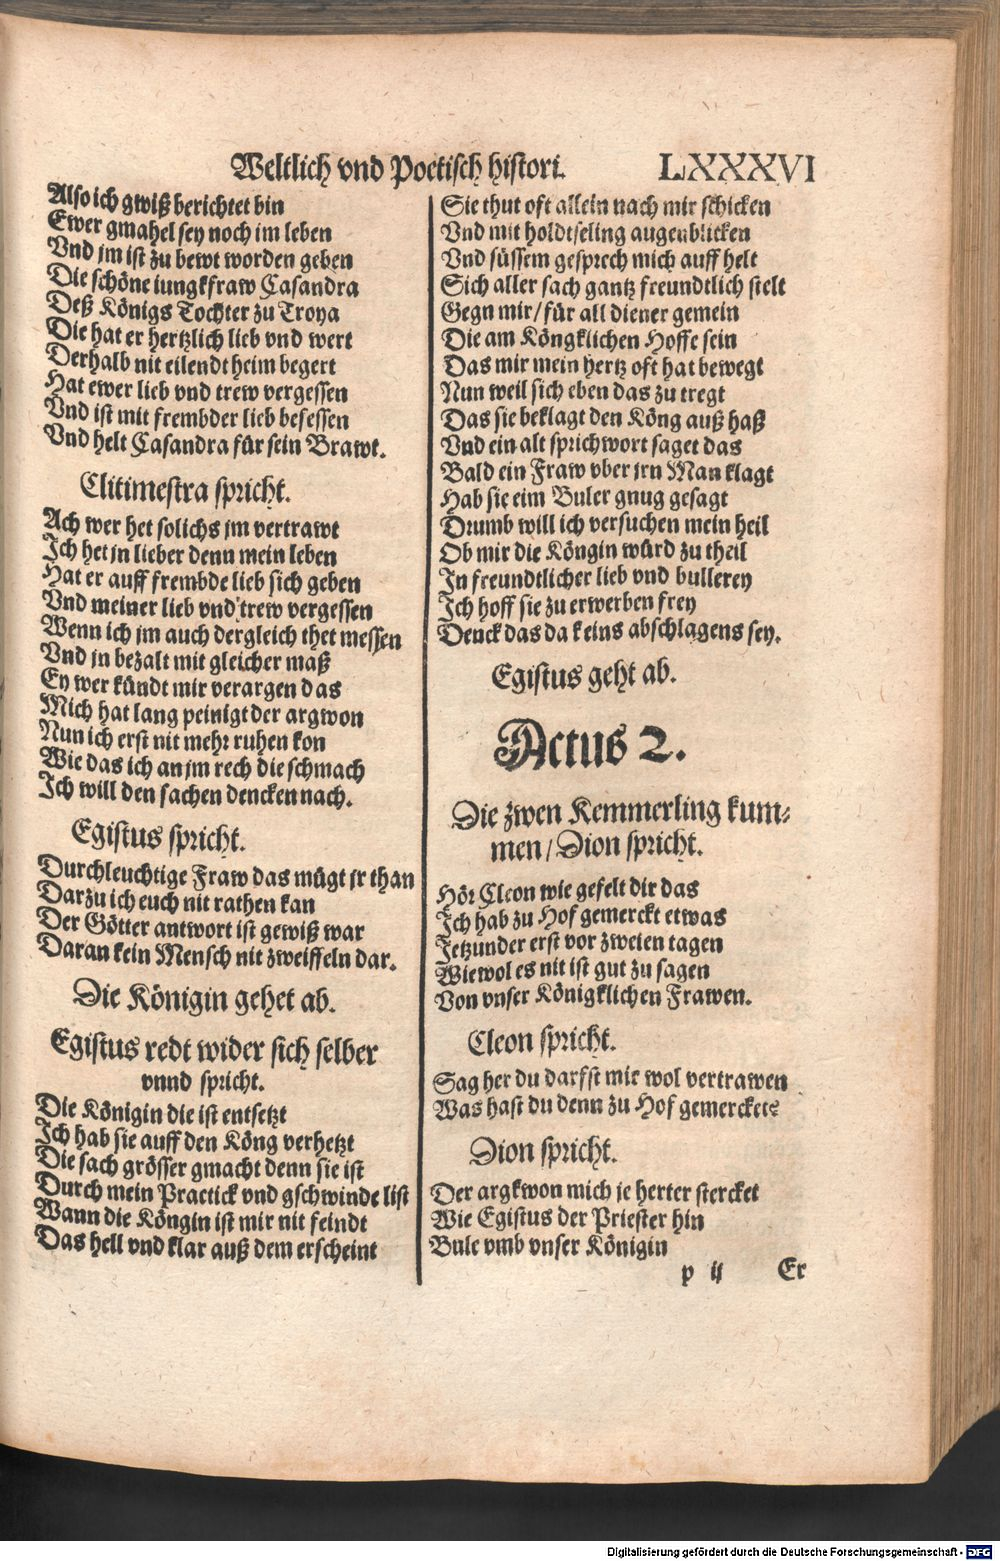 Weltlich vnd Poetisch histori. LXXXVI
Also ich gwiß berichtet bin
Ewer gmahel sey noch im leben
Vnd jm ist zu bewt worden geben
Die schöne iungkfraw Casandra
Deß Königs Tochter zu Troya
Die hat er hertzlich lieb vnd wert
Derhalb nit eilendt heim begert
Hat ewer lieb vnd trew vergessen
Vnd ist mit frembder lieb besessen
Vnd helt Casandra für sein Brawt.
Clitimestra spricht.
Ach wer het solichs jm vertrawt
Ich het jn lieber denn mein leben
Hat er auff frembde lieb sich geben
Vnd meiner lieb vnd trew vergessen
Wenn ich jm auch dergleich thet messen
Vnd jn bezalt mit gleicher maß
Ey wer kündt mir verargen das
Mich hat lang peinigt der argwon
Nun ich erst nit mehr ruhen kon
Wie das ich an jm rech die schmach
Ich will den sachen dencken nach.
Egistus spricht.
Durchleuchtige Fraw das mügt jr than
Darzu ich euch nit rathen kan
Der Götter antwort ist gewiß war
Daran kein Mensch nit zweiffeln dar.
Die Königin gehet ab.
Egistus redt wider sich selber
vnnd spricht.
Die Königin die ist entsetzt
Ich hab sie auff den Köng verhetzt
Die sach grösser gmacht denn sie ist
Durch mein Practick vnd gschwinde list
Wann die Köngin ist mir nit feindt
Das hell vnd klar auß dem erscheint
Sie thut oft allein nach mir schicken
Vnd mit holdtseling augenblicken
Vnd süssem gesprech mich auff helt
Sich aller sach gantz freundtlich stelt
Gegn mir/ für all diener gemein
Die am Köngklichen Hoffe sein
Das mir mein hertz oft hat bewegt
Nun weil sich eben das zu tregt
Das sie beklagt den Köng auß haß
Vnd ein alt sprichwort saget das
Bald ein Fraw vber jrn Man klagt
Hab sie eim Buler gnug gesagt
Drumb will ich versuchen mein heil
Ob mir die Köngin würd zu theil
In freundtlicher lieb vnd bullerey
Ich hoff sie zu erwerben frey
Denck das da keins abschlagens sey.
Egistus geht ab.
Actus 2.
Die zwen Kemmerling kum⸗
men/ Dion spricht.
Hör Cleon wie gefelt dir das
Ich hab zu Hof gemerckt etwas
Jetzunder erst vor zweien tagen
Wiewol es nit ist gut zu sagen
Von vnser Königklichen Frawen.
Cleon spricht.
Sag her du darfst mir wol vertrawen
Was hast du denn zu Hof gemercket?
Dion spricht.
Der argkwon mich je herter stercket
Wie Egistus der Priester hin
Bule vmb vnser Königin
p ij Er
Digitalisierung gefördert durch die Deutsche Forschungsgemeinschaft - DFG